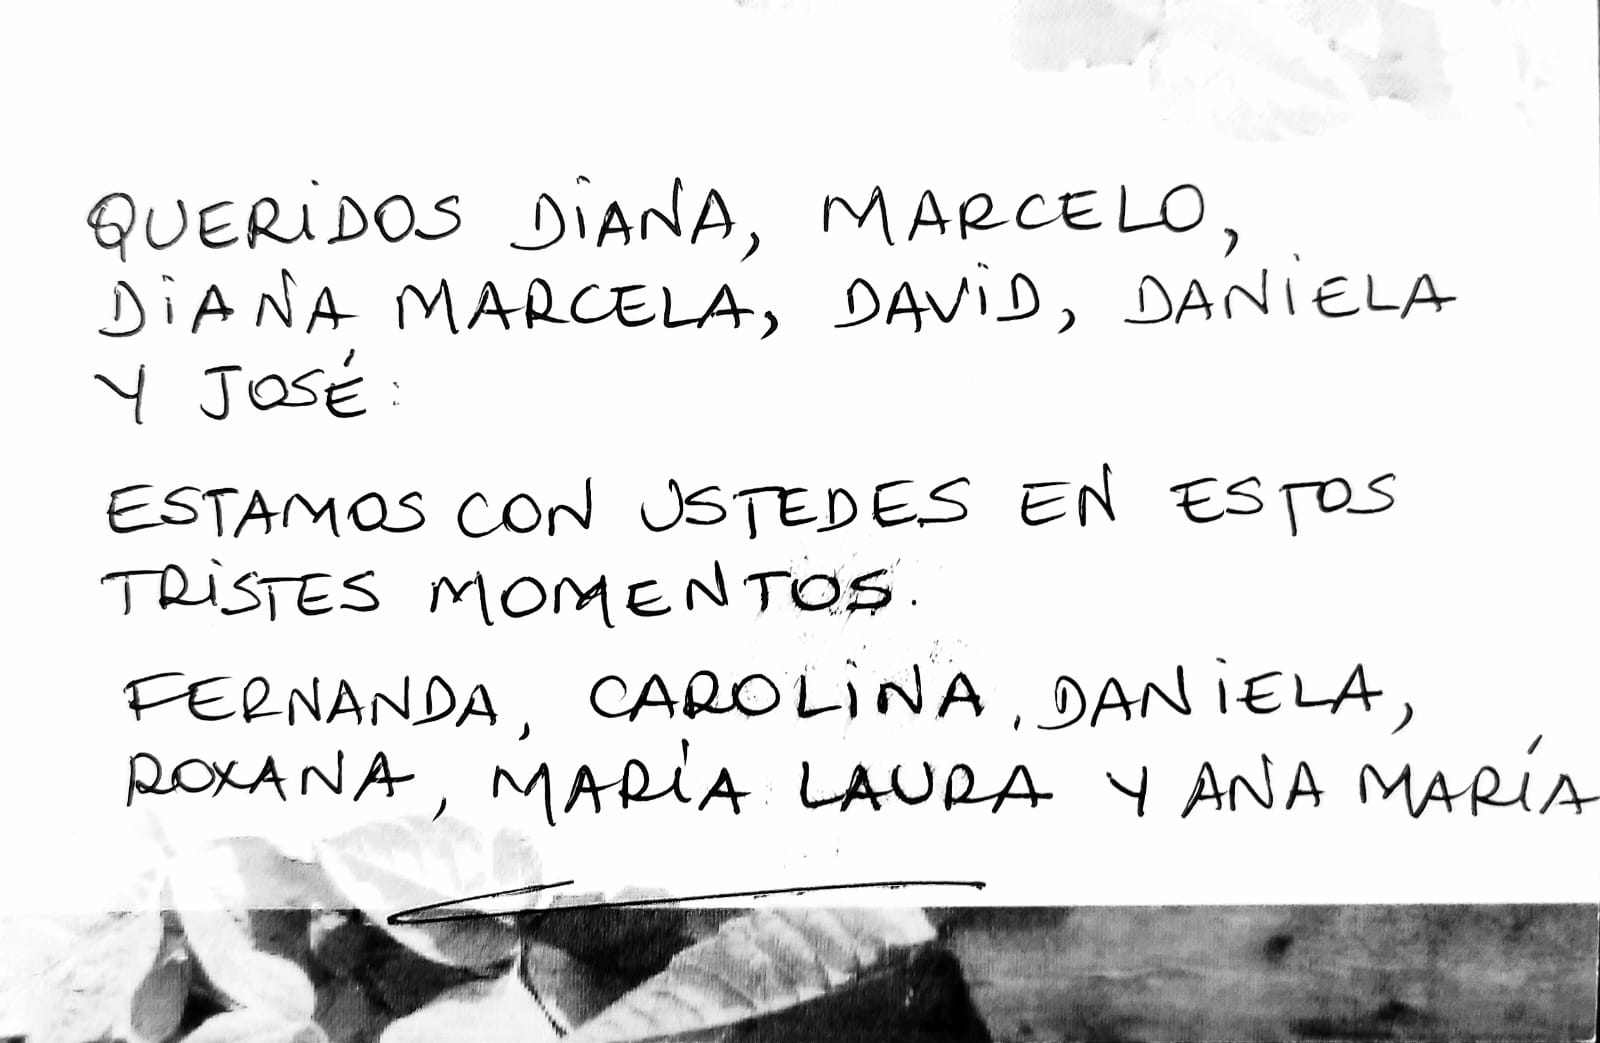 QUERIDOS DIANA, MARCELO,
DIANA MARCELA, DAVID, DANIELA
Y JOSÉ:
ESTAMOS CON USTEDES EN ESTOS
TRISTES MOMENTOS.
FERNANDA, CAROLINA, DANIELA,
ROXANA, MARÍA LAURA Y ANA MARÍA